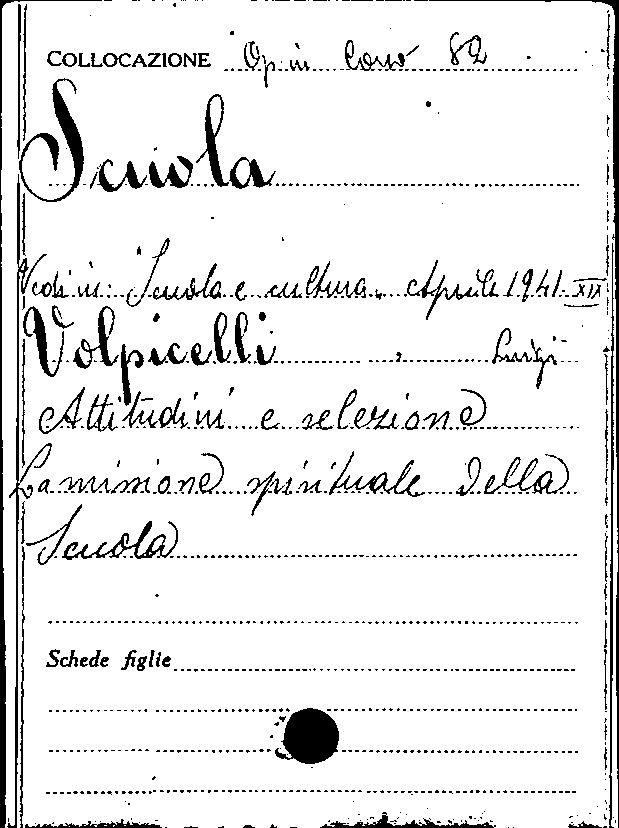 COLLOCAZIONE Op. in Corso 82
Scuola
Vedi in: "Scuola e cultura" Aprile 1941-XIX
Volpicelli, Luigi
Attitudini e selezione
La missione spirituale della
Scuola
Schede figlie